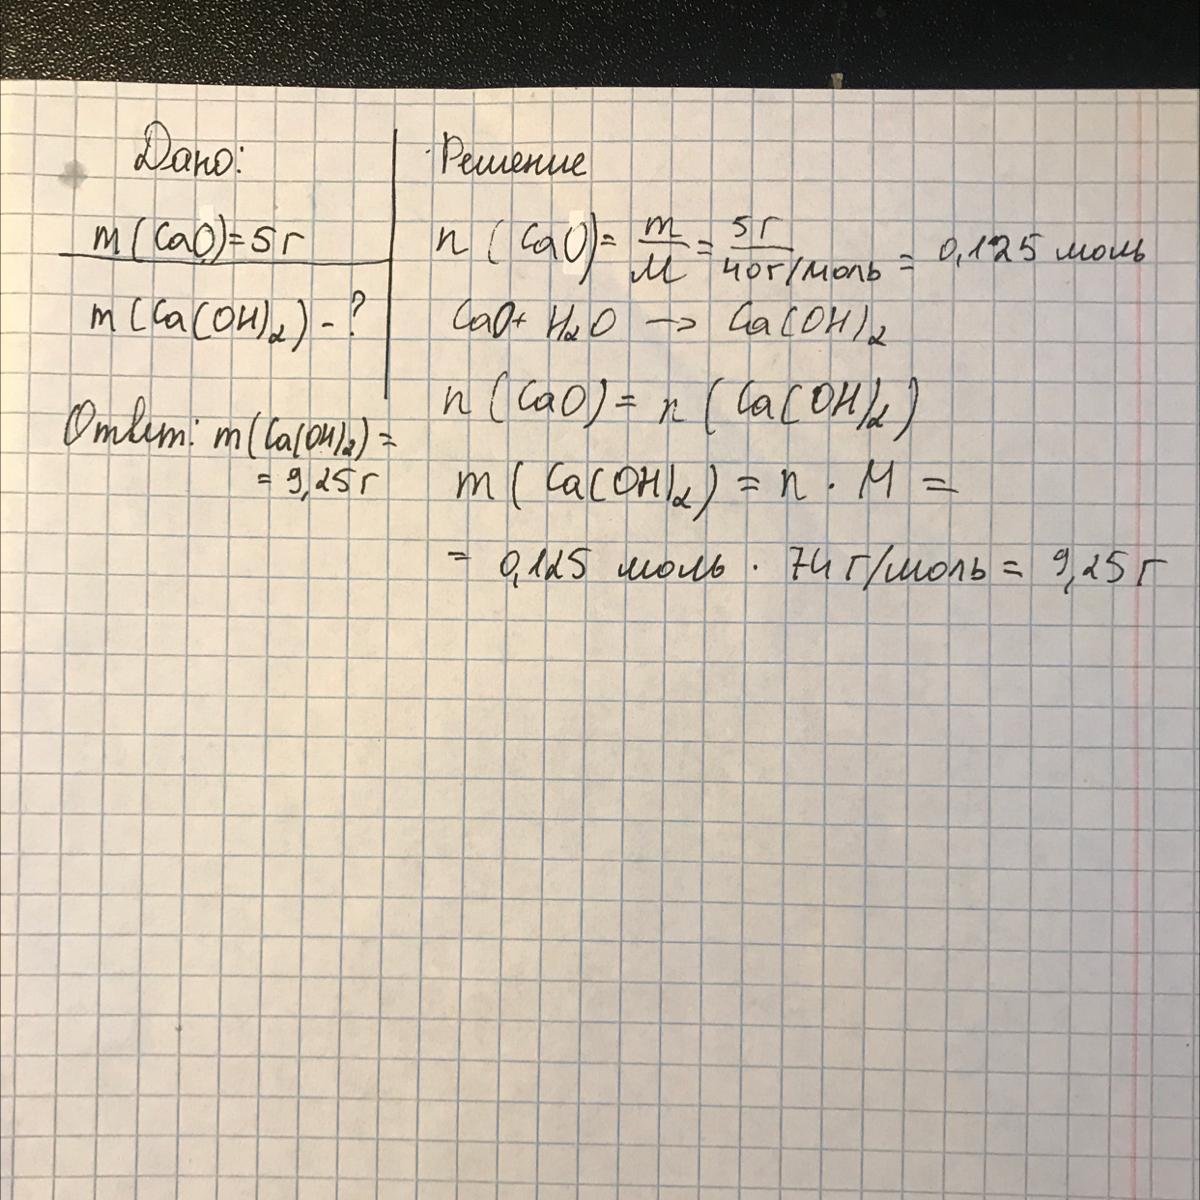 Дано:
m(CaO)=5г
m(Ca(OH)₂)-?
Ответ: m(Ca(OH)₂)=
=9,25г
Решение
n(CaO)=m/M=5г/40г/моль=0,125 моль
CaO+H₂O→Ca(OH)₂
n(CaO)=n(Ca(OH)₂)
m(Ca(OH)₂)=n·M=
=0,125 моль·74г/моль=9,25г